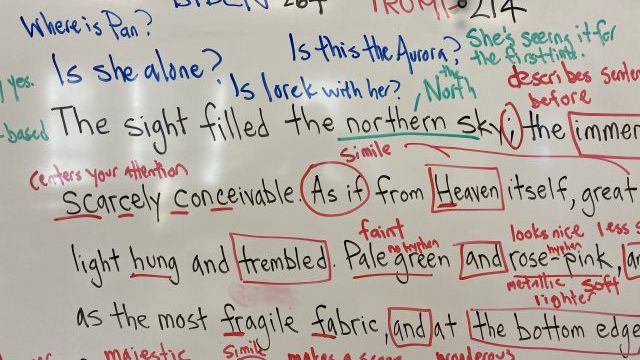 BIDEN 264 TRUMP 214
Where is Pan?
Is this the Aurora? She's seeing it for
the first time.
yes. Is she alone? Is Iorek with her? the North
describes senten
before
-based The sight filled the northern sky; the immer
Simile
centers your attention
scarcely conceivable. As if from Heaven itself, great
faint looks nice less s
no hyphen hyphen
light hung and trembled. Pale green and rose-pink, a
metallic soft
lighter
as the most fragile fabric, and at the bottom edge
majestic simile makes a scene wonderous